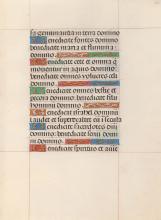 germinantia in terra domino
Benedicite fontes domino
benedicite maria et flumina
domino
Benedicite cete et omnia q
moventur in aquis domino
benedicite omnes volucres celi
domino
Benedicite omnes bestie et
pecora domino benedicite filii
hominum domino
Benedicat israel dominum
laudet et superexaltet eum in secula
Benedicite sacerdotes domini
domino benedicite servi domini
domino
Benedicite spiritus et anime